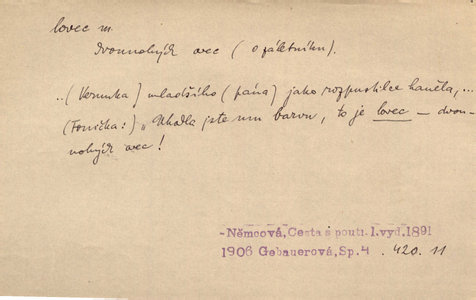 lovec m.
dvounohých ovec (o záletníku).
..(Verunka) mladšího (pána) jako rozpustilce haněla, ...
(Tonička:) „Uhodla jste mu barvu, to je lovec – dvou-
nohých ovec!
-Němcová, Cesta s pouti. 1. vyd. 1891
1906 Gebauerová, Sp. 4 . 420. 11